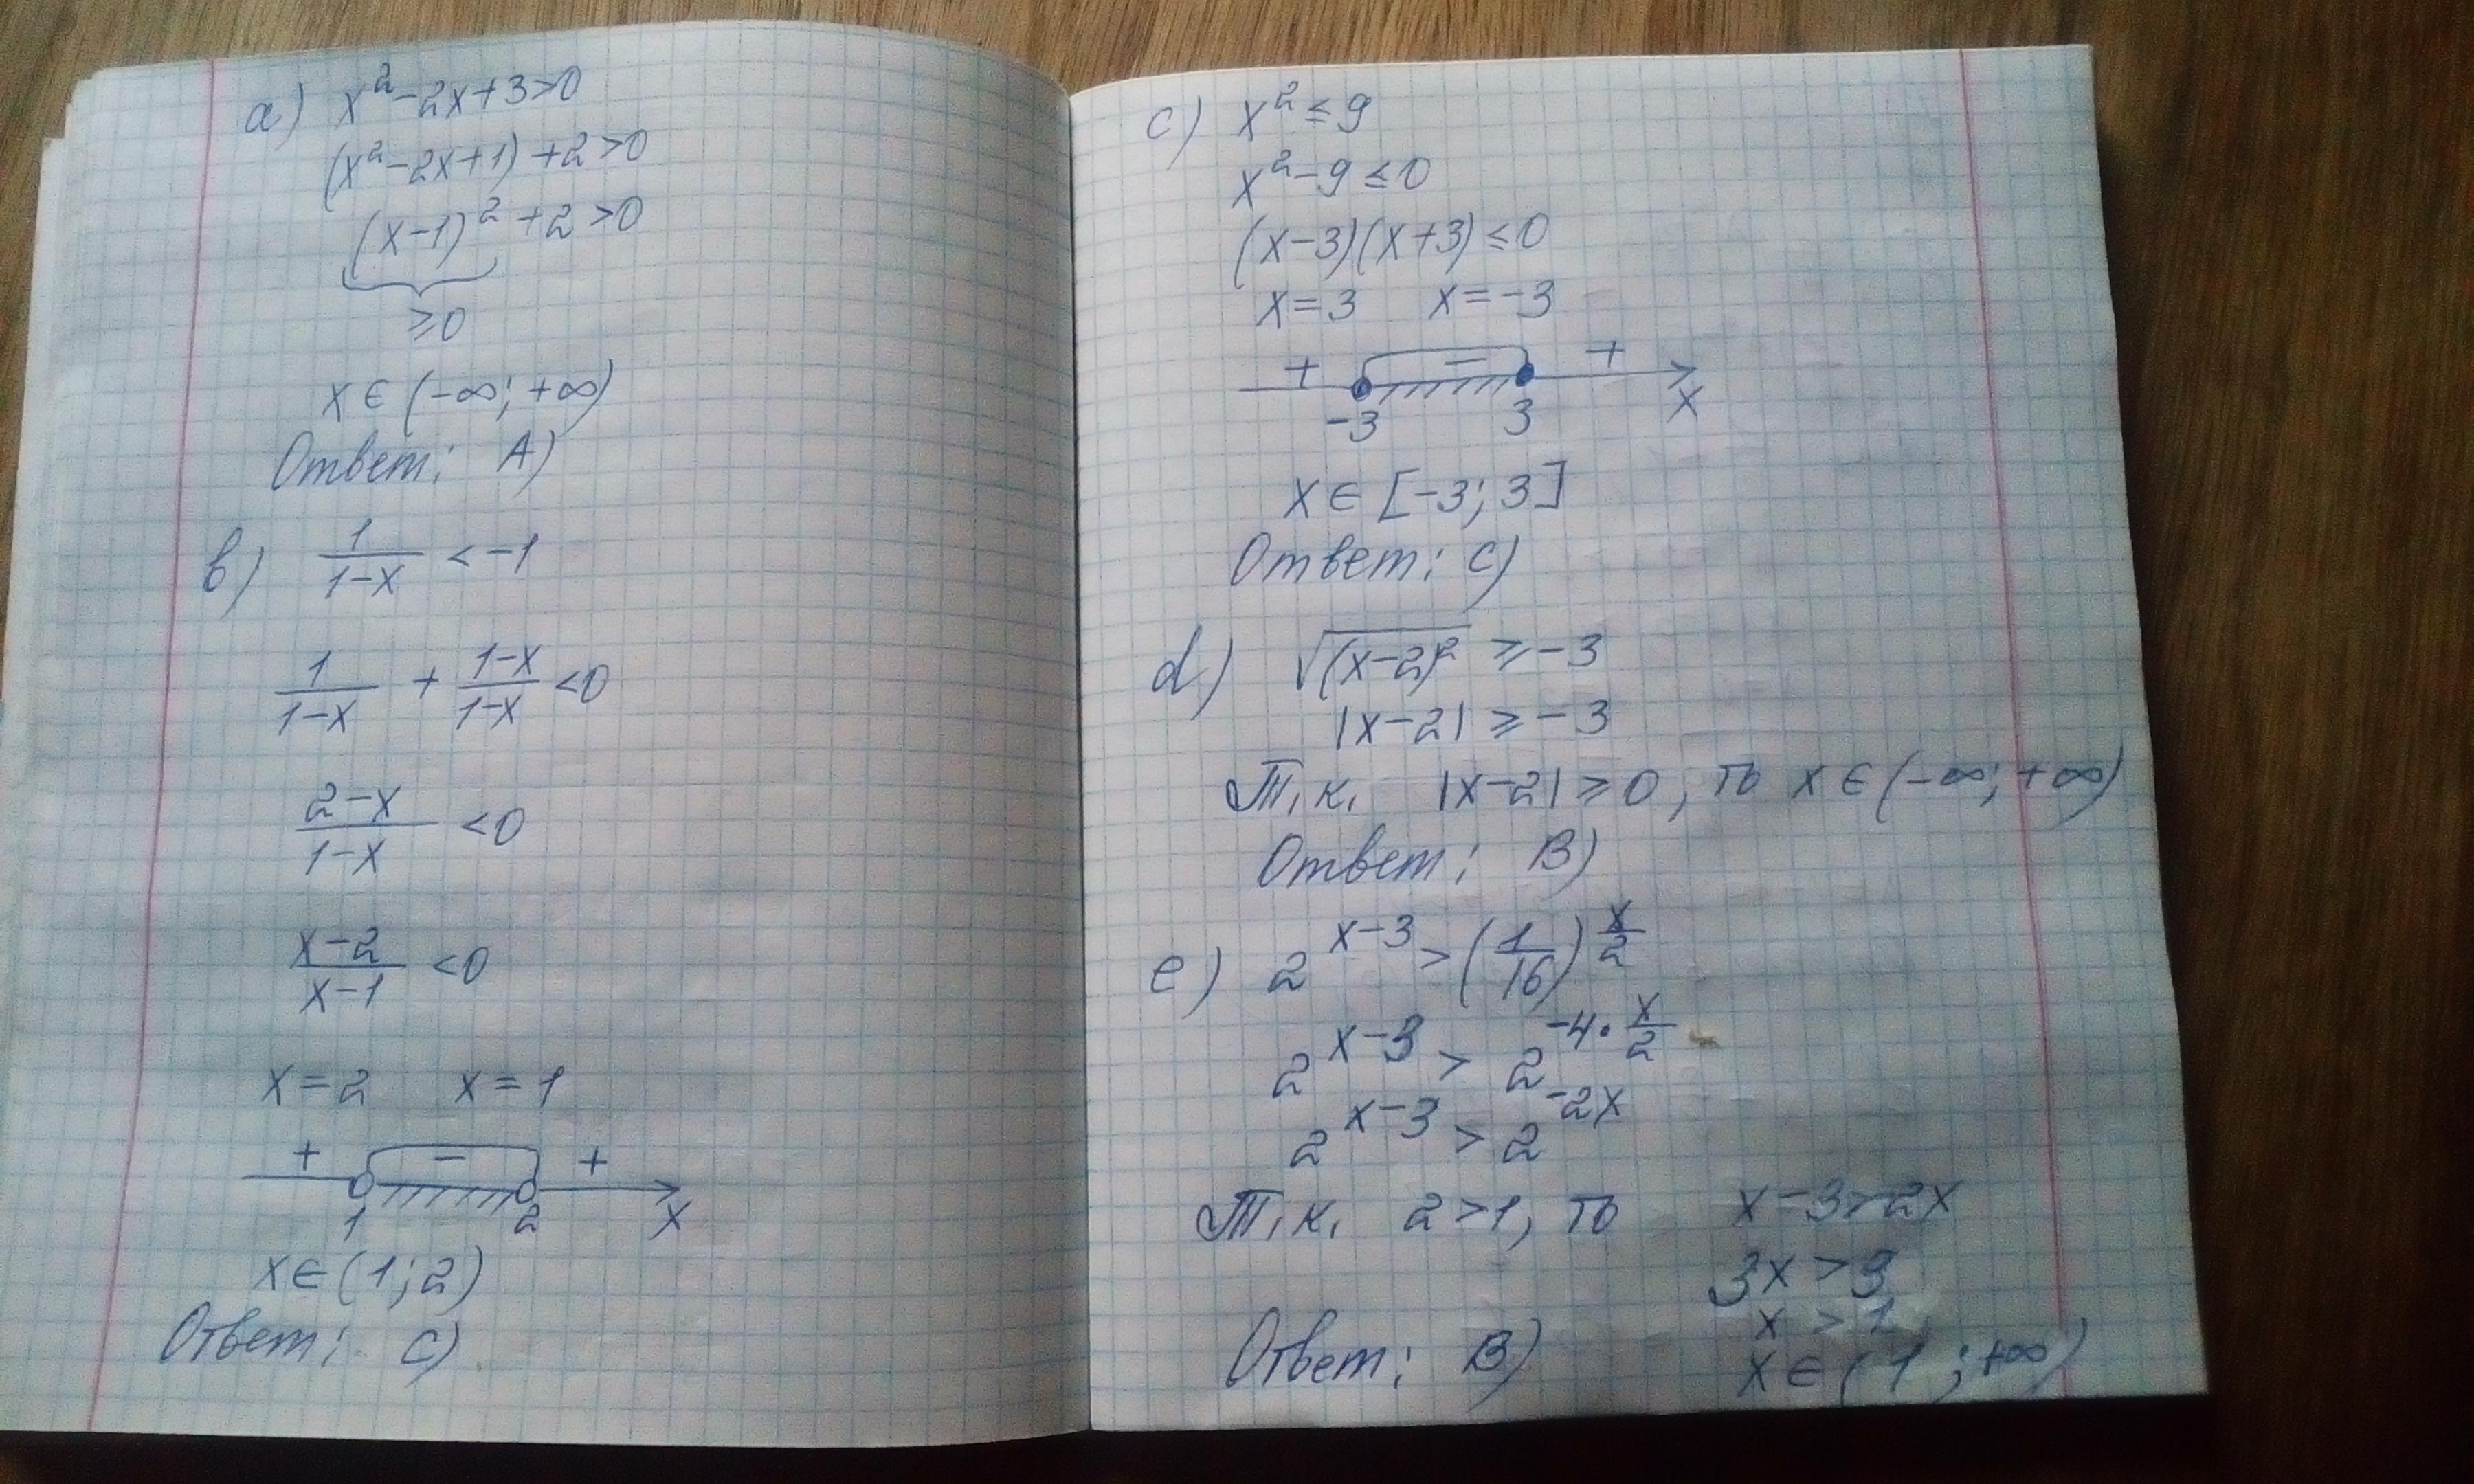 a) x²-2x+3>0
(x²-2x+1)+2>0
(x-1)²+2>0
≥0
x∈(-∞;+∞)
Ответ: A)
b) 1/(1-x) < -1
1/(1-x) + (1-x)/(1-x) <0
(2-x)/(1-x) <0
(x-2)/(x-1) <0
x=2 x=1
+ - +
1 2 x
x∈(1;2)
Ответ: C)
c) x²≤9
x²-9≤0
(x-3)(x+3)≤0
x=3 x=-3
+ - +
-3 3 x
x∈[-3;3]
Ответ: C)
d) √(x-2)² ≥-3
|x-2| ≥-3
Т.к. |x-2|≥0, то x∈(-∞;+∞)
Ответ: B)
e) 2^(x-3) > (1/16)^(x/2)
2^(x-3) > 2^(-4·x/2)
2^(x-3) > 2^(-2x)
Т.к. 2>1, то x-3>-2x
3x>3
x>1
x∈(1;+∞)
Ответ: B)